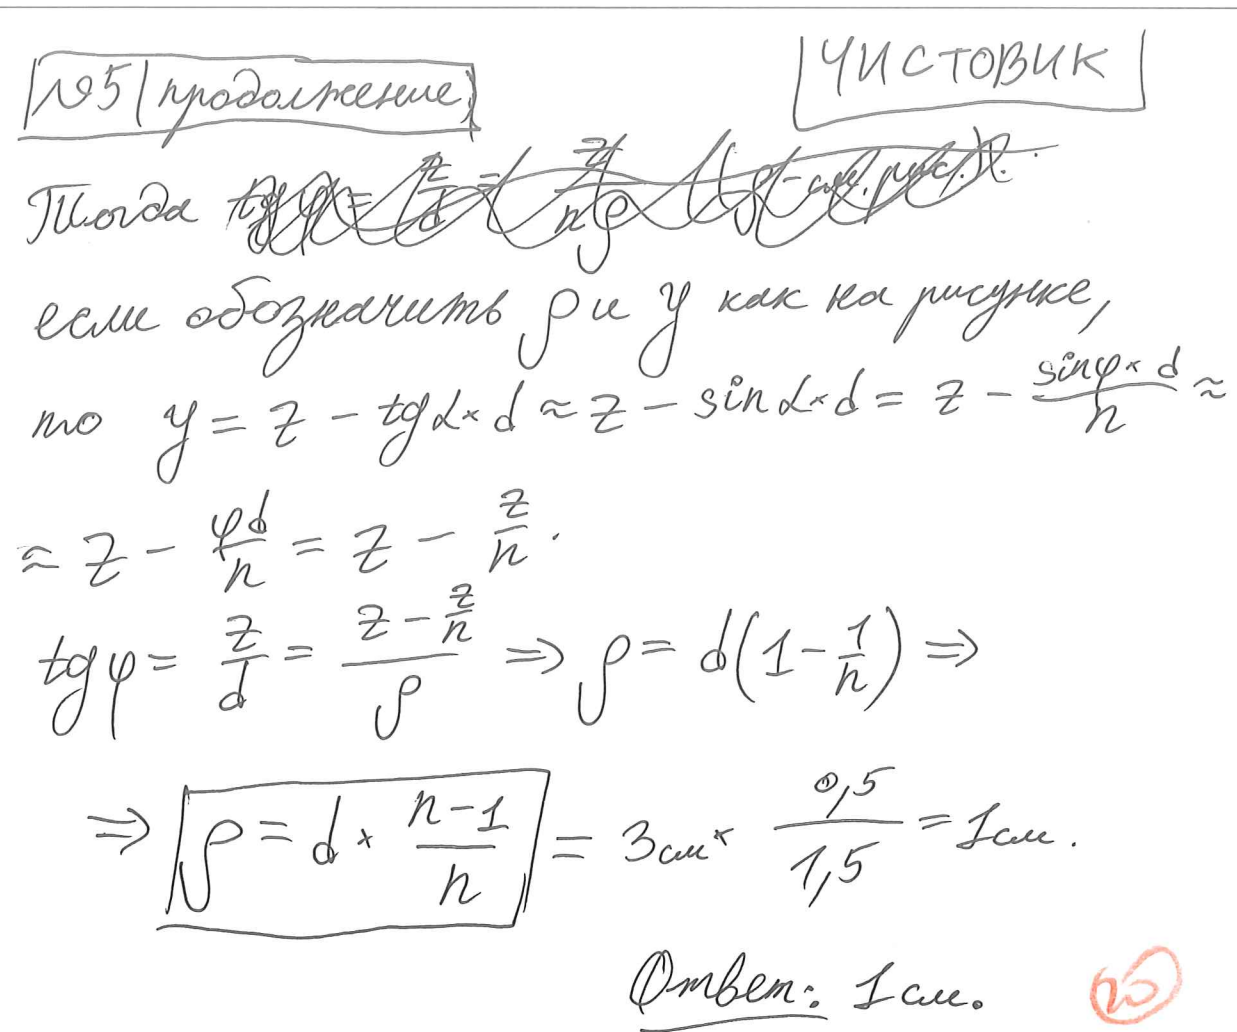 №5 продолжение
ЧИСТОВИК
Тогда
если обозначить ρ и y как на рисунке,
то y = z − tgα × d ≈ z − sinα × d = z − (sinφ × d)/n ≈
≈ z − φd/n = z − z/n.
tgφ = z/d = (z − z/n)/ρ ⇒ ρ = d(1 − 1/n) ⇒
⇒ ρ = d × (n−1)/n = 3см × 0,5/1,5 = 1см.
Ответ: 1см.